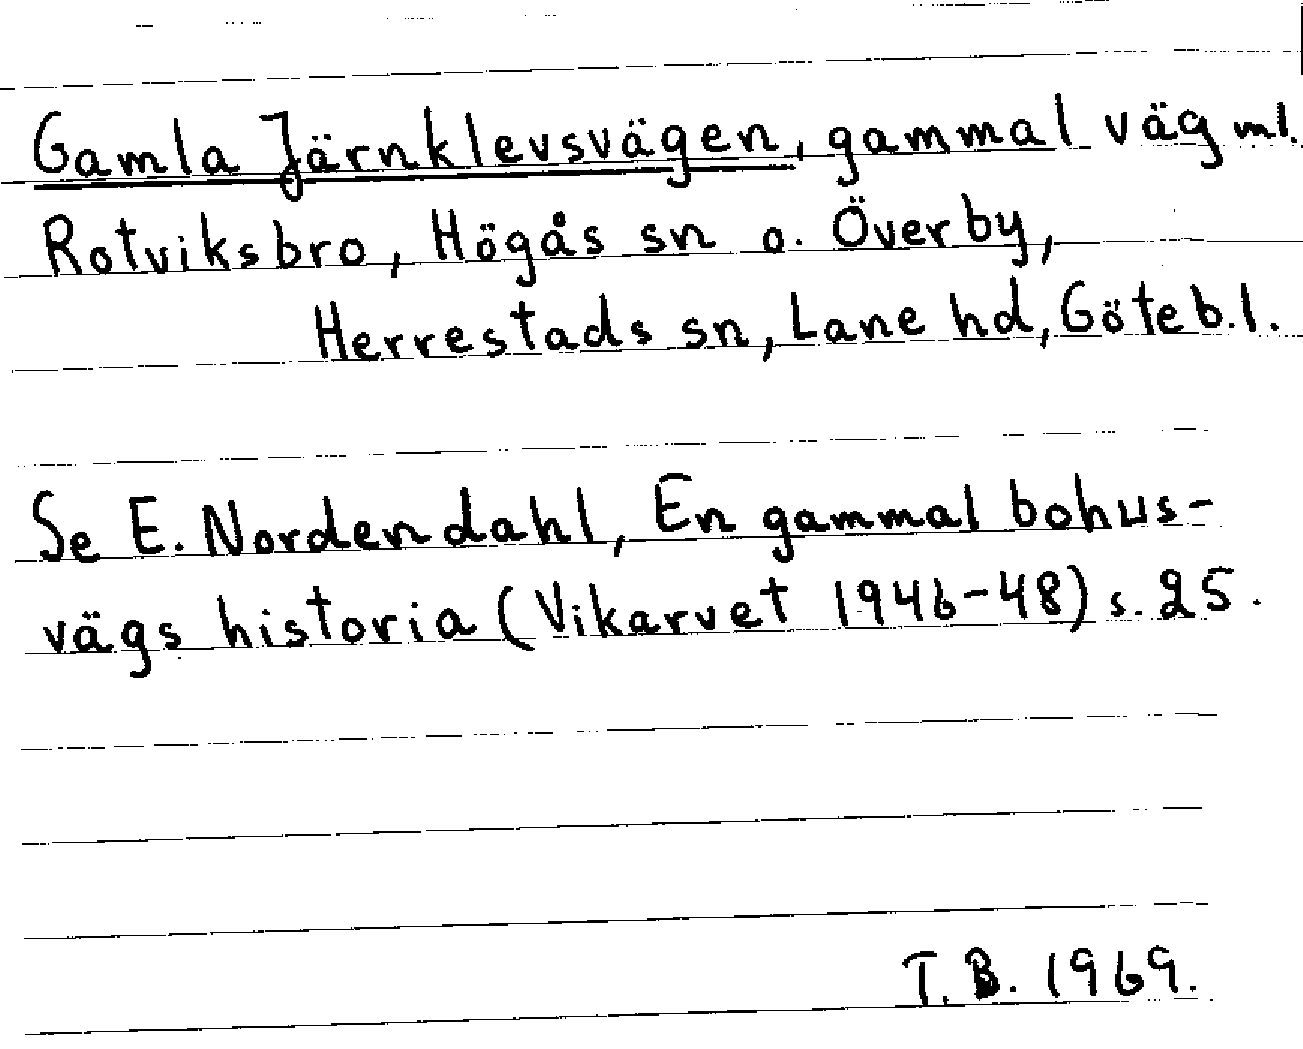 Gamla Järnklevsvägen, gammal väg ml.
Rotviksbro, Högås sn o. Överby,
Herrestads sn, Lane hd, Göteb.l.
Se E. Nordendahl, En gammal bohus-
vägs historia (Vikarvet 1946-48) s. 25.
T.B. 1969.